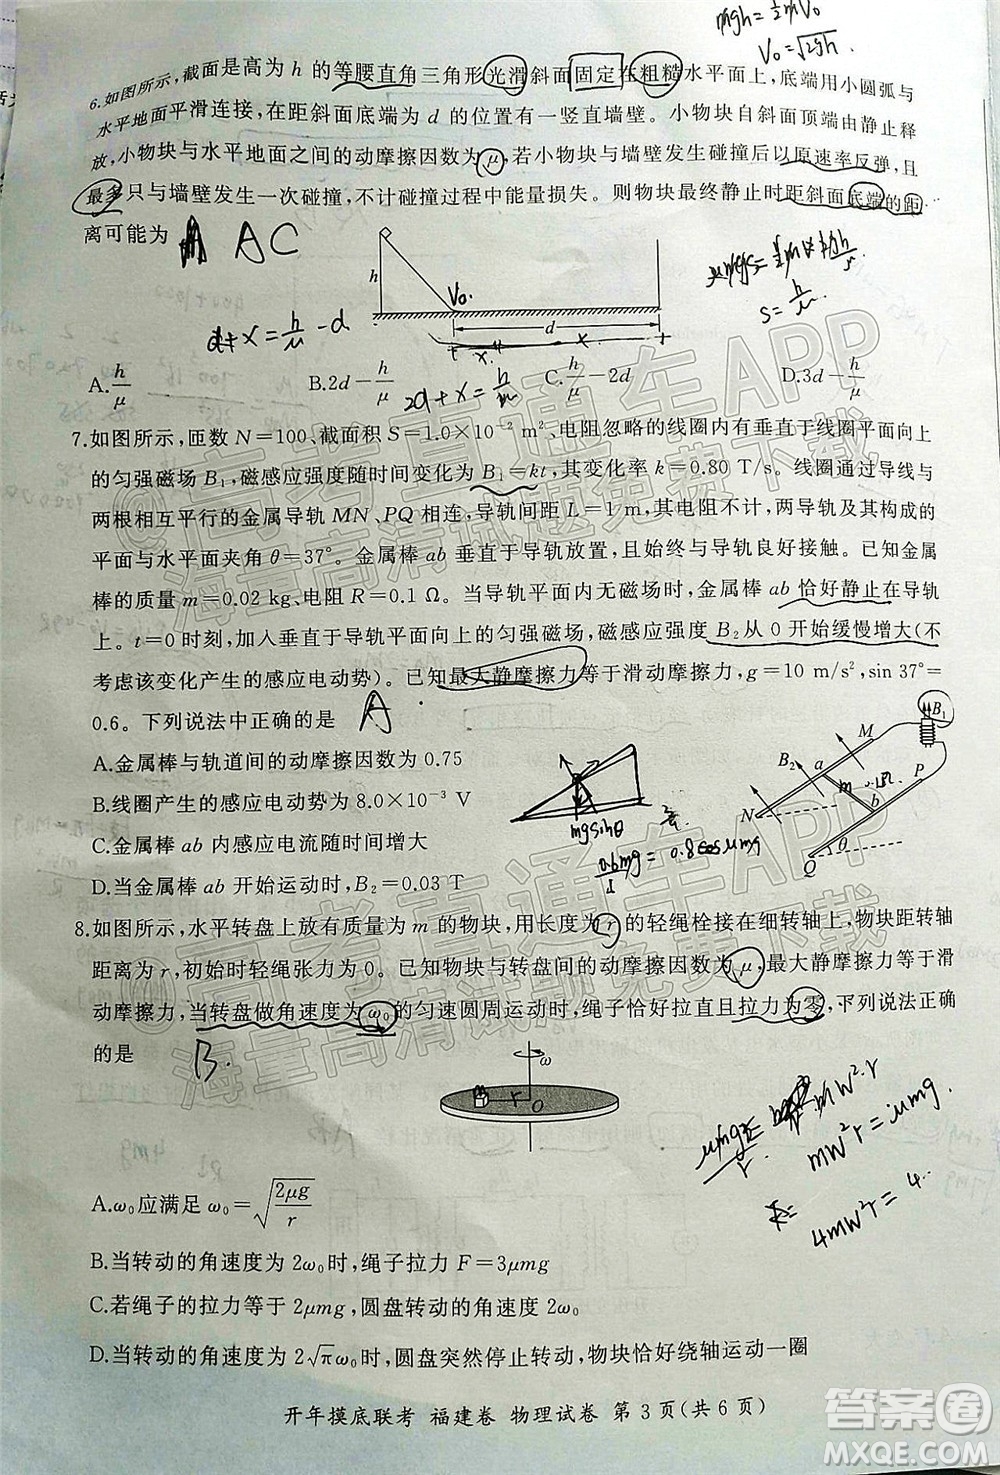 mgh=½mV₀
V₀=√2gh
6.如图所示,截面是高为 h 的等腰直角三角形光滑斜面固定在粗糙水平面上,底端用小圆弧与
水平地面平滑连接,在距斜面底端为 d 的位置有一竖直墙壁。小物块自斜面顶端由静止释
放,小物块与水平地面之间的动摩擦因数为 μ,若小物块与墙壁发生碰撞后以原速率反弹,且
最多只与墙壁发生一次碰撞,不计碰撞过程中能量损失。则物块最终静止时距斜面底端的距
离可能为 AC
h
V₀
d
d+x=h/μ-d
s=h/μ
2d+x=h/μ
A.h/μ B.2d-h/μ C.h/μ-2d D.3d-h/μ
7.如图所示,匝数 N=100、截面积 S=1.0×10⁻² m²、电阻忽略的线圈内有垂直于线圈平面向上
的匀强磁场 B₁,磁感应强度随时间变化为 B₁=kt,其变化率 k=0.80 T/s。线圈通过导线与
两根相互平行的金属导轨 MN、PQ 相连,导轨间距 L=1 m,其电阻不计,两平行金属导轨的
平面与水平面夹角 θ=37°。金属棒 ab 垂直于导轨放置,且始终与导轨良好接触。已知金属
棒的质量 m=0.02 kg、电阻 R=0.1 Ω。当导轨平面内无磁场时,金属棒 ab 恰好静止在导轨
上。t=0 时刻,加入垂直于导轨平面向上的匀强磁场,磁感应强度 B₂从 0 开始缓慢增大(不
考虑该变化产生的感应电动势)。已知最大静摩擦力等于滑动摩擦力,g=10 m/s²,sin 37°=
0.6。下列说法中正确的是 A
A.金属棒与轨道间的动摩擦因数为 0.75
B.线圈产生的感应电动势为 8.0×10⁻³ V
C.金属棒 ab 内感应电流随时间增大
D.当金属棒 ab 开始运动时,B₂=0.03 T
B₁
M
B₂
a
P
m
b
N
θ
Q
mgsinθ
8.如图所示,水平转盘上放有质量为 m 的物块,用长度为 r 的轻绳栓接在细转轴上,物块距转轴
距离为 r,初始时轻绳张力为 0。已知物块与转盘间的动摩擦因数为 μ,最大静摩擦力等于滑
动摩擦力,当转盘做角速度为 ω₀ 的匀速圆周运动时,绳子恰好拉直且拉力为零,下列说法正确
的是 B.
ω
r
O
mw²r=μmg.
4mw²r=4..
A.ω₀应满足 ω₀=√(2μg/r)
B.当转动的角速度为 2ω₀时,绳子拉力 F=3μmg
C.若绳子的拉力等于 2μmg,圆盘转动的角速度 2ω₀
D.当转动的角速度为 2√πω₀时,圆盘突然停止转动,物块恰好绕轴运动一圈
开年摸底联考 福建卷 物理试卷 第 3 页(共 6 页)
@高考直通车APP
海量高清试题免费下载
@高考直通车APP
海量高清试题免费下载
答案圈
MXQE.COM